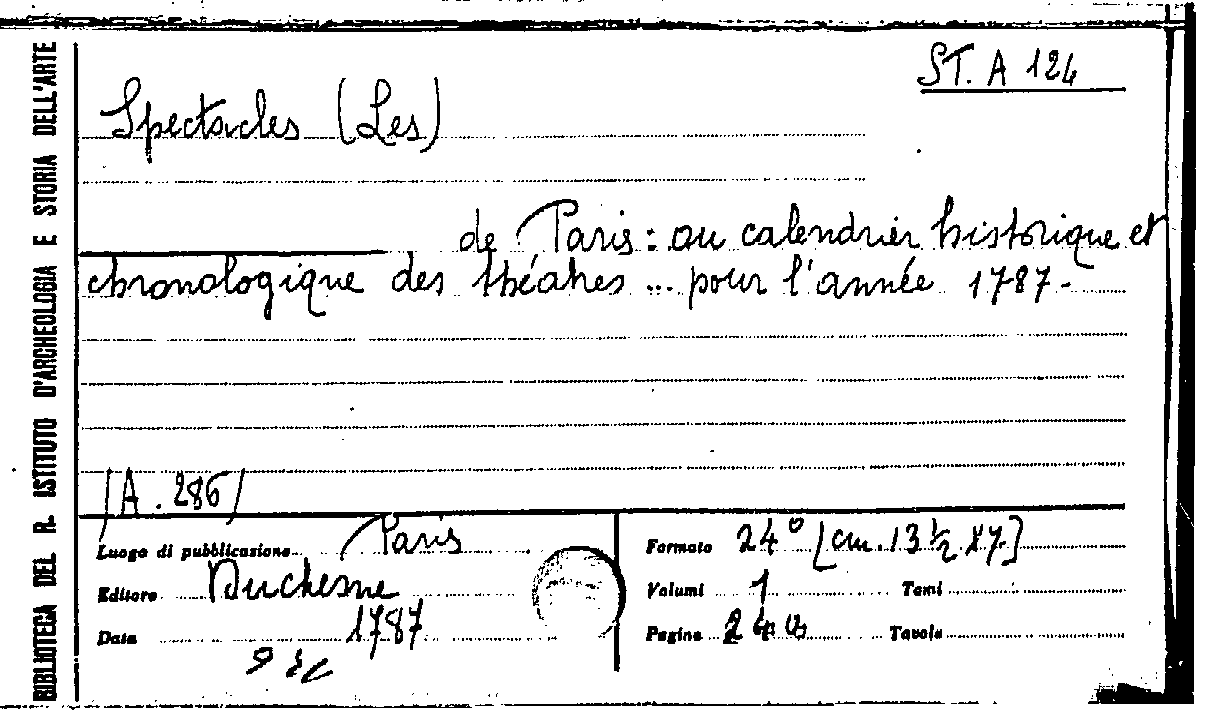 BIBLIOTECA DEL R. ISTITUTO D'ARCHEOLOGIA E STORIA DELL'ARTE
ST. A 124
Spectacles (Les)
de Paris: ou calendrier historique et
chronologique des théâtres ... pour l'année 1787-
(A. 286)
Luogo di pubblicazione Paris
Editore Duchesne
Data 1787
Formato 24° [cm. 13 ½ x 7]
Volumi 1 Tomi
Pagine Tavole